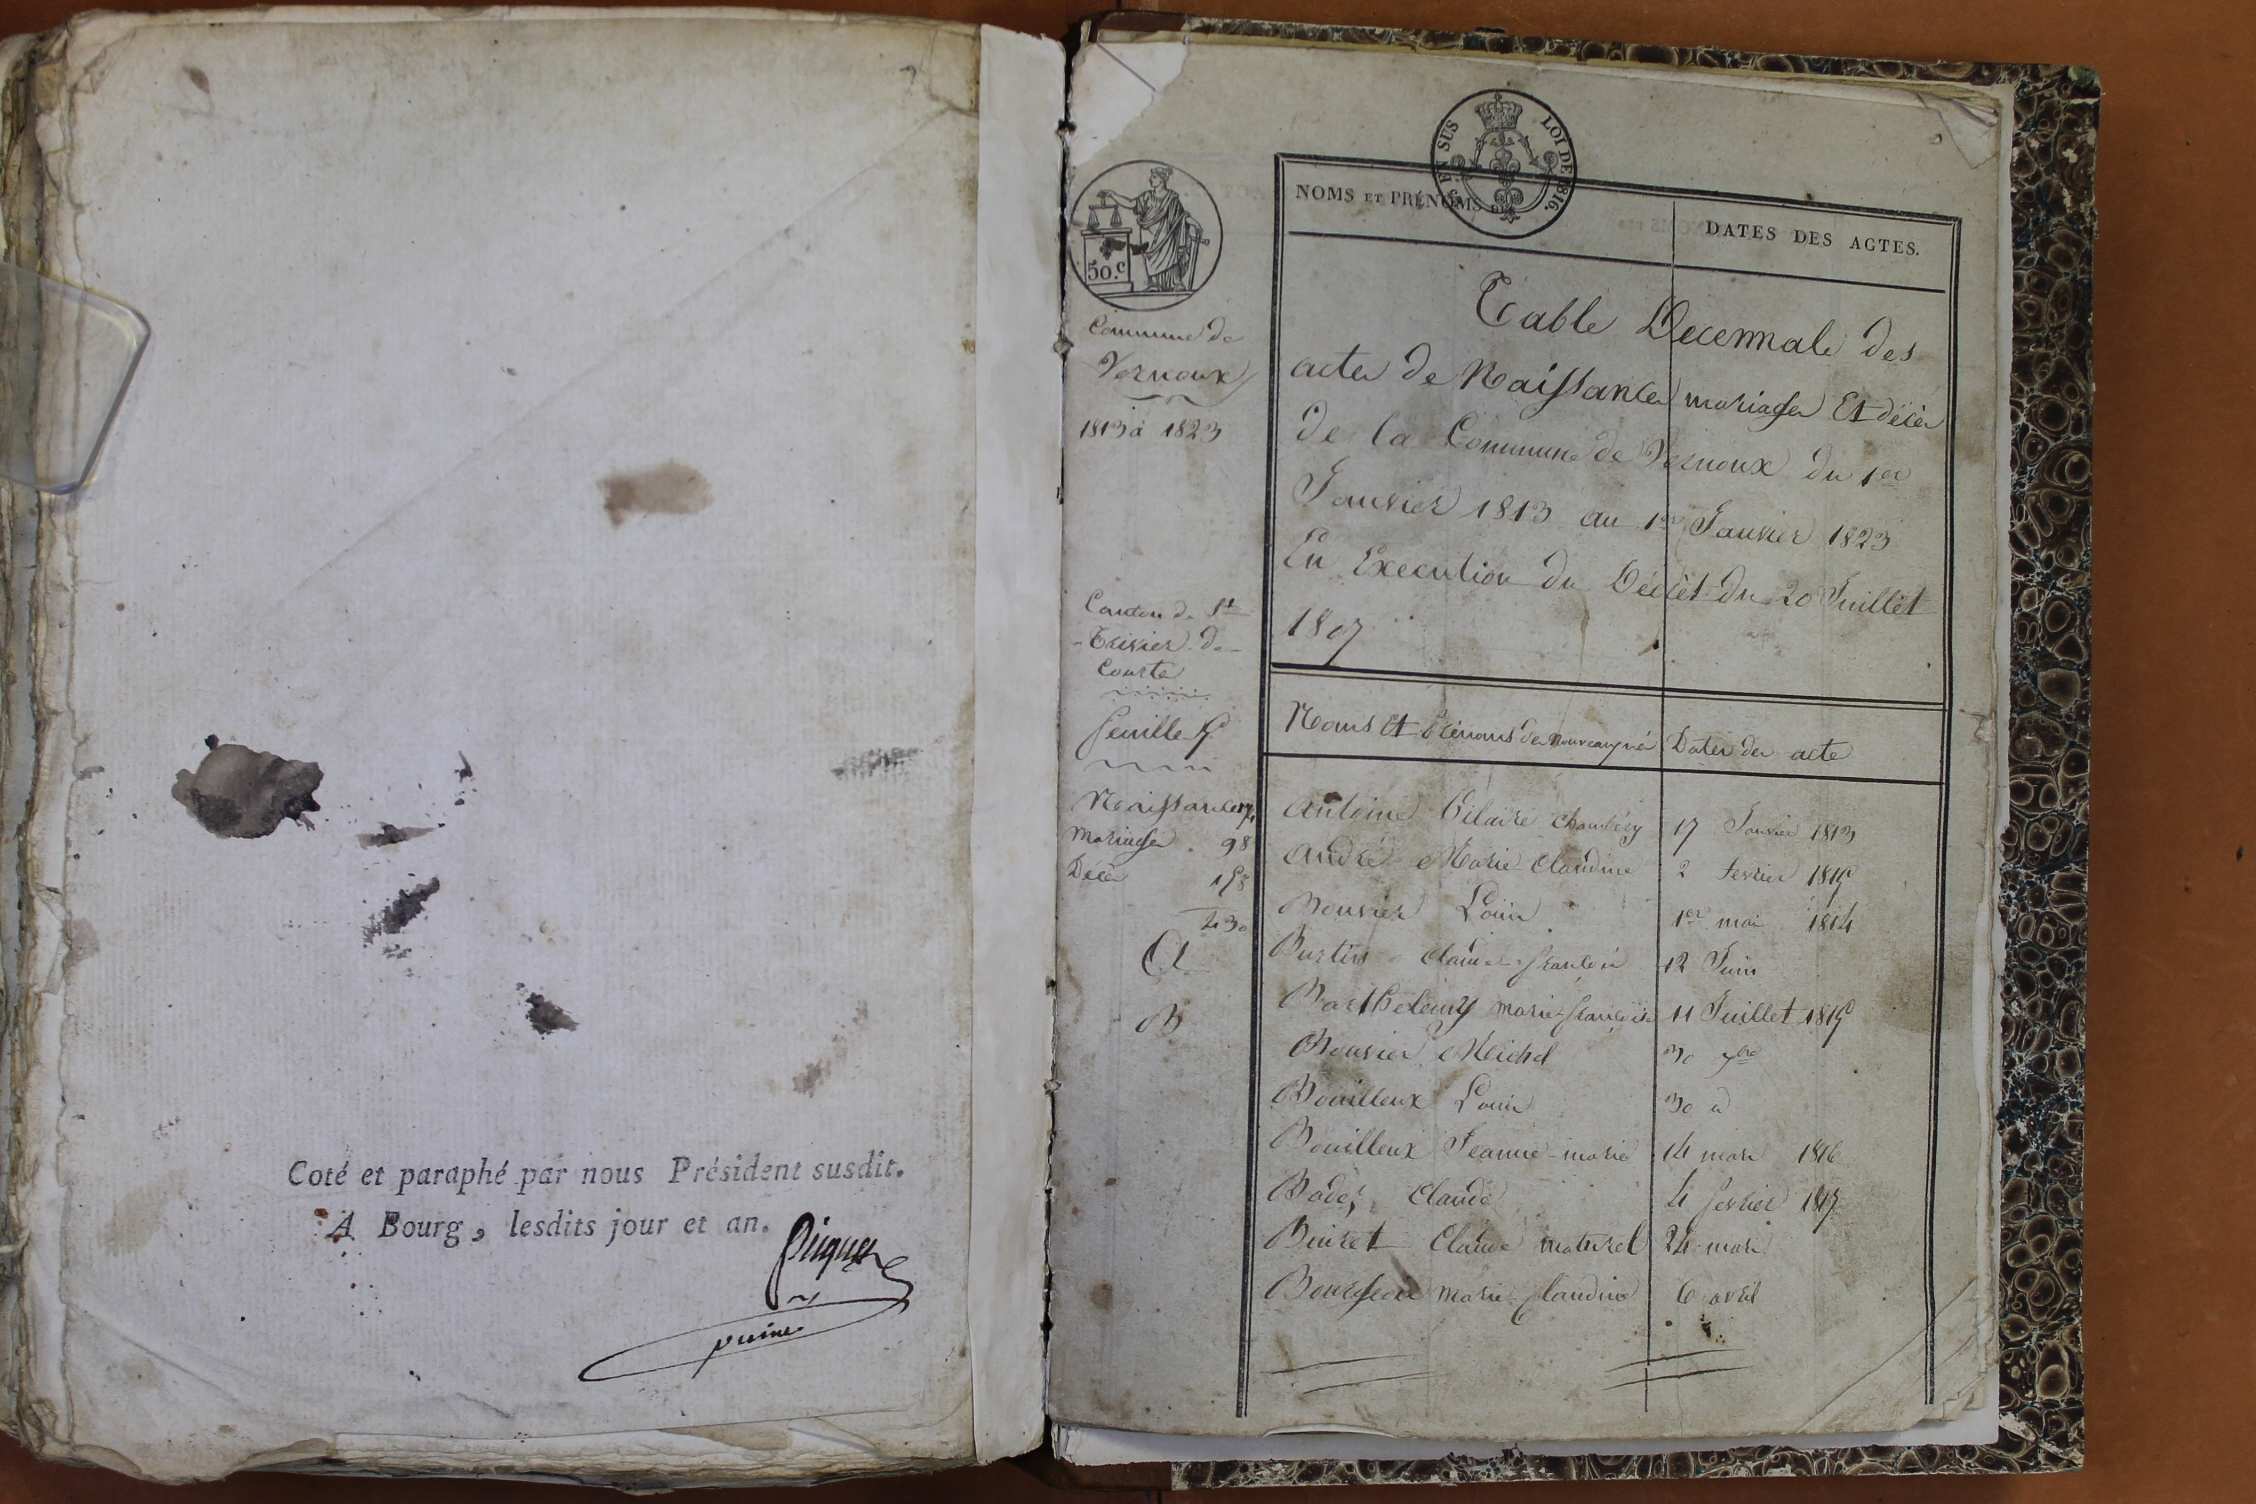 Coté et paraphé par nous Président susdit.
A Bourg, lesdits jour et an.
EN SUS LOI DE 1816.
50.c
NOMS ET PRÉNOMS DES
DATES DES ACTES.
Commune de
Vernoux
1813 à 1823
Canton de St
Trivier de
Courtes
feuille
Naissances
mariages 98
Décès 158
430
A
B
Table Decennale des
actes de Naissances mariages Et décès
de la Commune de Vernoux du 1er
Janvier 1813 au 1er Janvier 1823
En Execution du Décret du 20 Juillet
1807
Noms Et Prénoms des nouveaux nés Dates des actes
Antoine hilaire Chambéry 17 Janvier 1813
André Marie Claudine 2 fevrier 1815
Bouvier Louis 1er mai 1814
Burtin Claude francois 12 Juin
Barthelemy marie francoise 11 Juillet 1815
Bouvier Michel 30 7bre
Bouilleux Louis 30 d
Bouilleux Jeanne-marie 14 mars 1816
Claude 4 fevrier 1817
Buiret Claude naturel 24 mars
Bourgeois marie Claudine 6 avril